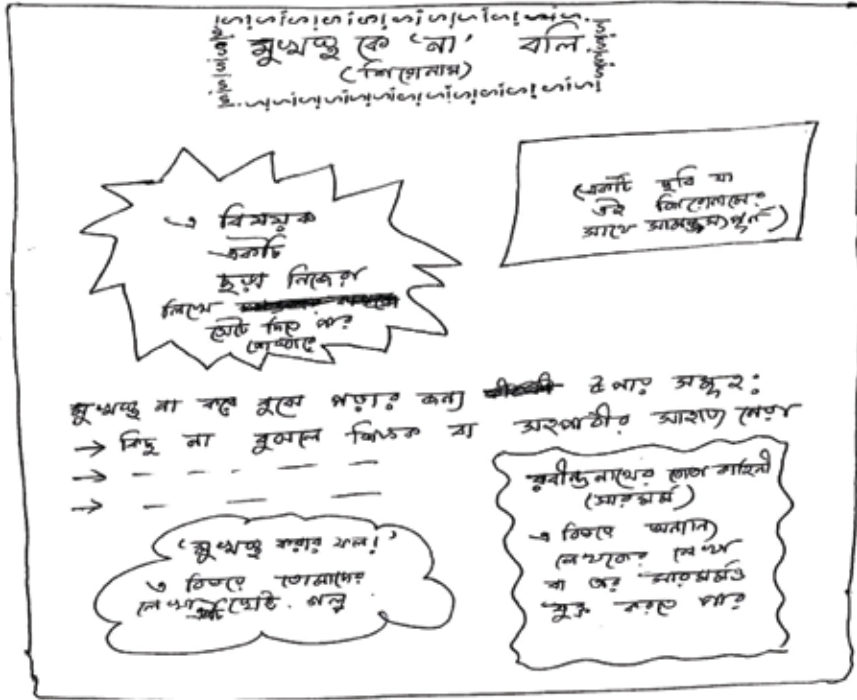 মুখস্থ কে 'না' বলি
(শিরোনাম)
এ বিষয়ক
একটি
ছড়া নিজেরা
লিখে
সেটে দিতে পার
পোস্টারে
(একটি ছবি যা
এই শিরোনামের
সাথে সামঞ্জস্যপূর্ণ)
মুখস্থ না করে বুঝে পড়ার জন্য উপায় সমূহ:
→ কিছু না বুঝলে শিক্ষক বা সহপাঠীর সাহায্য নেয়া
→ - - - -
→ - - - -
'মুখস্থ করার ফল!'
এ বিষয়ে তোমাদের
লেখা ছোট গল্প
রবীন্দ্রনাথের তোতা কাহিনী
(সারমর্ম)
এ বিষয়ে অন্যান্য
লেখকের লেখা
বা তার সারমর্মও
যুক্ত করতে পার